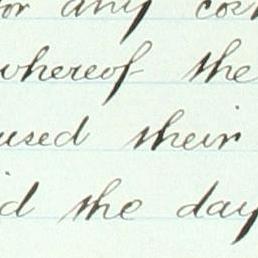 or any
whereof the
used their
id the day